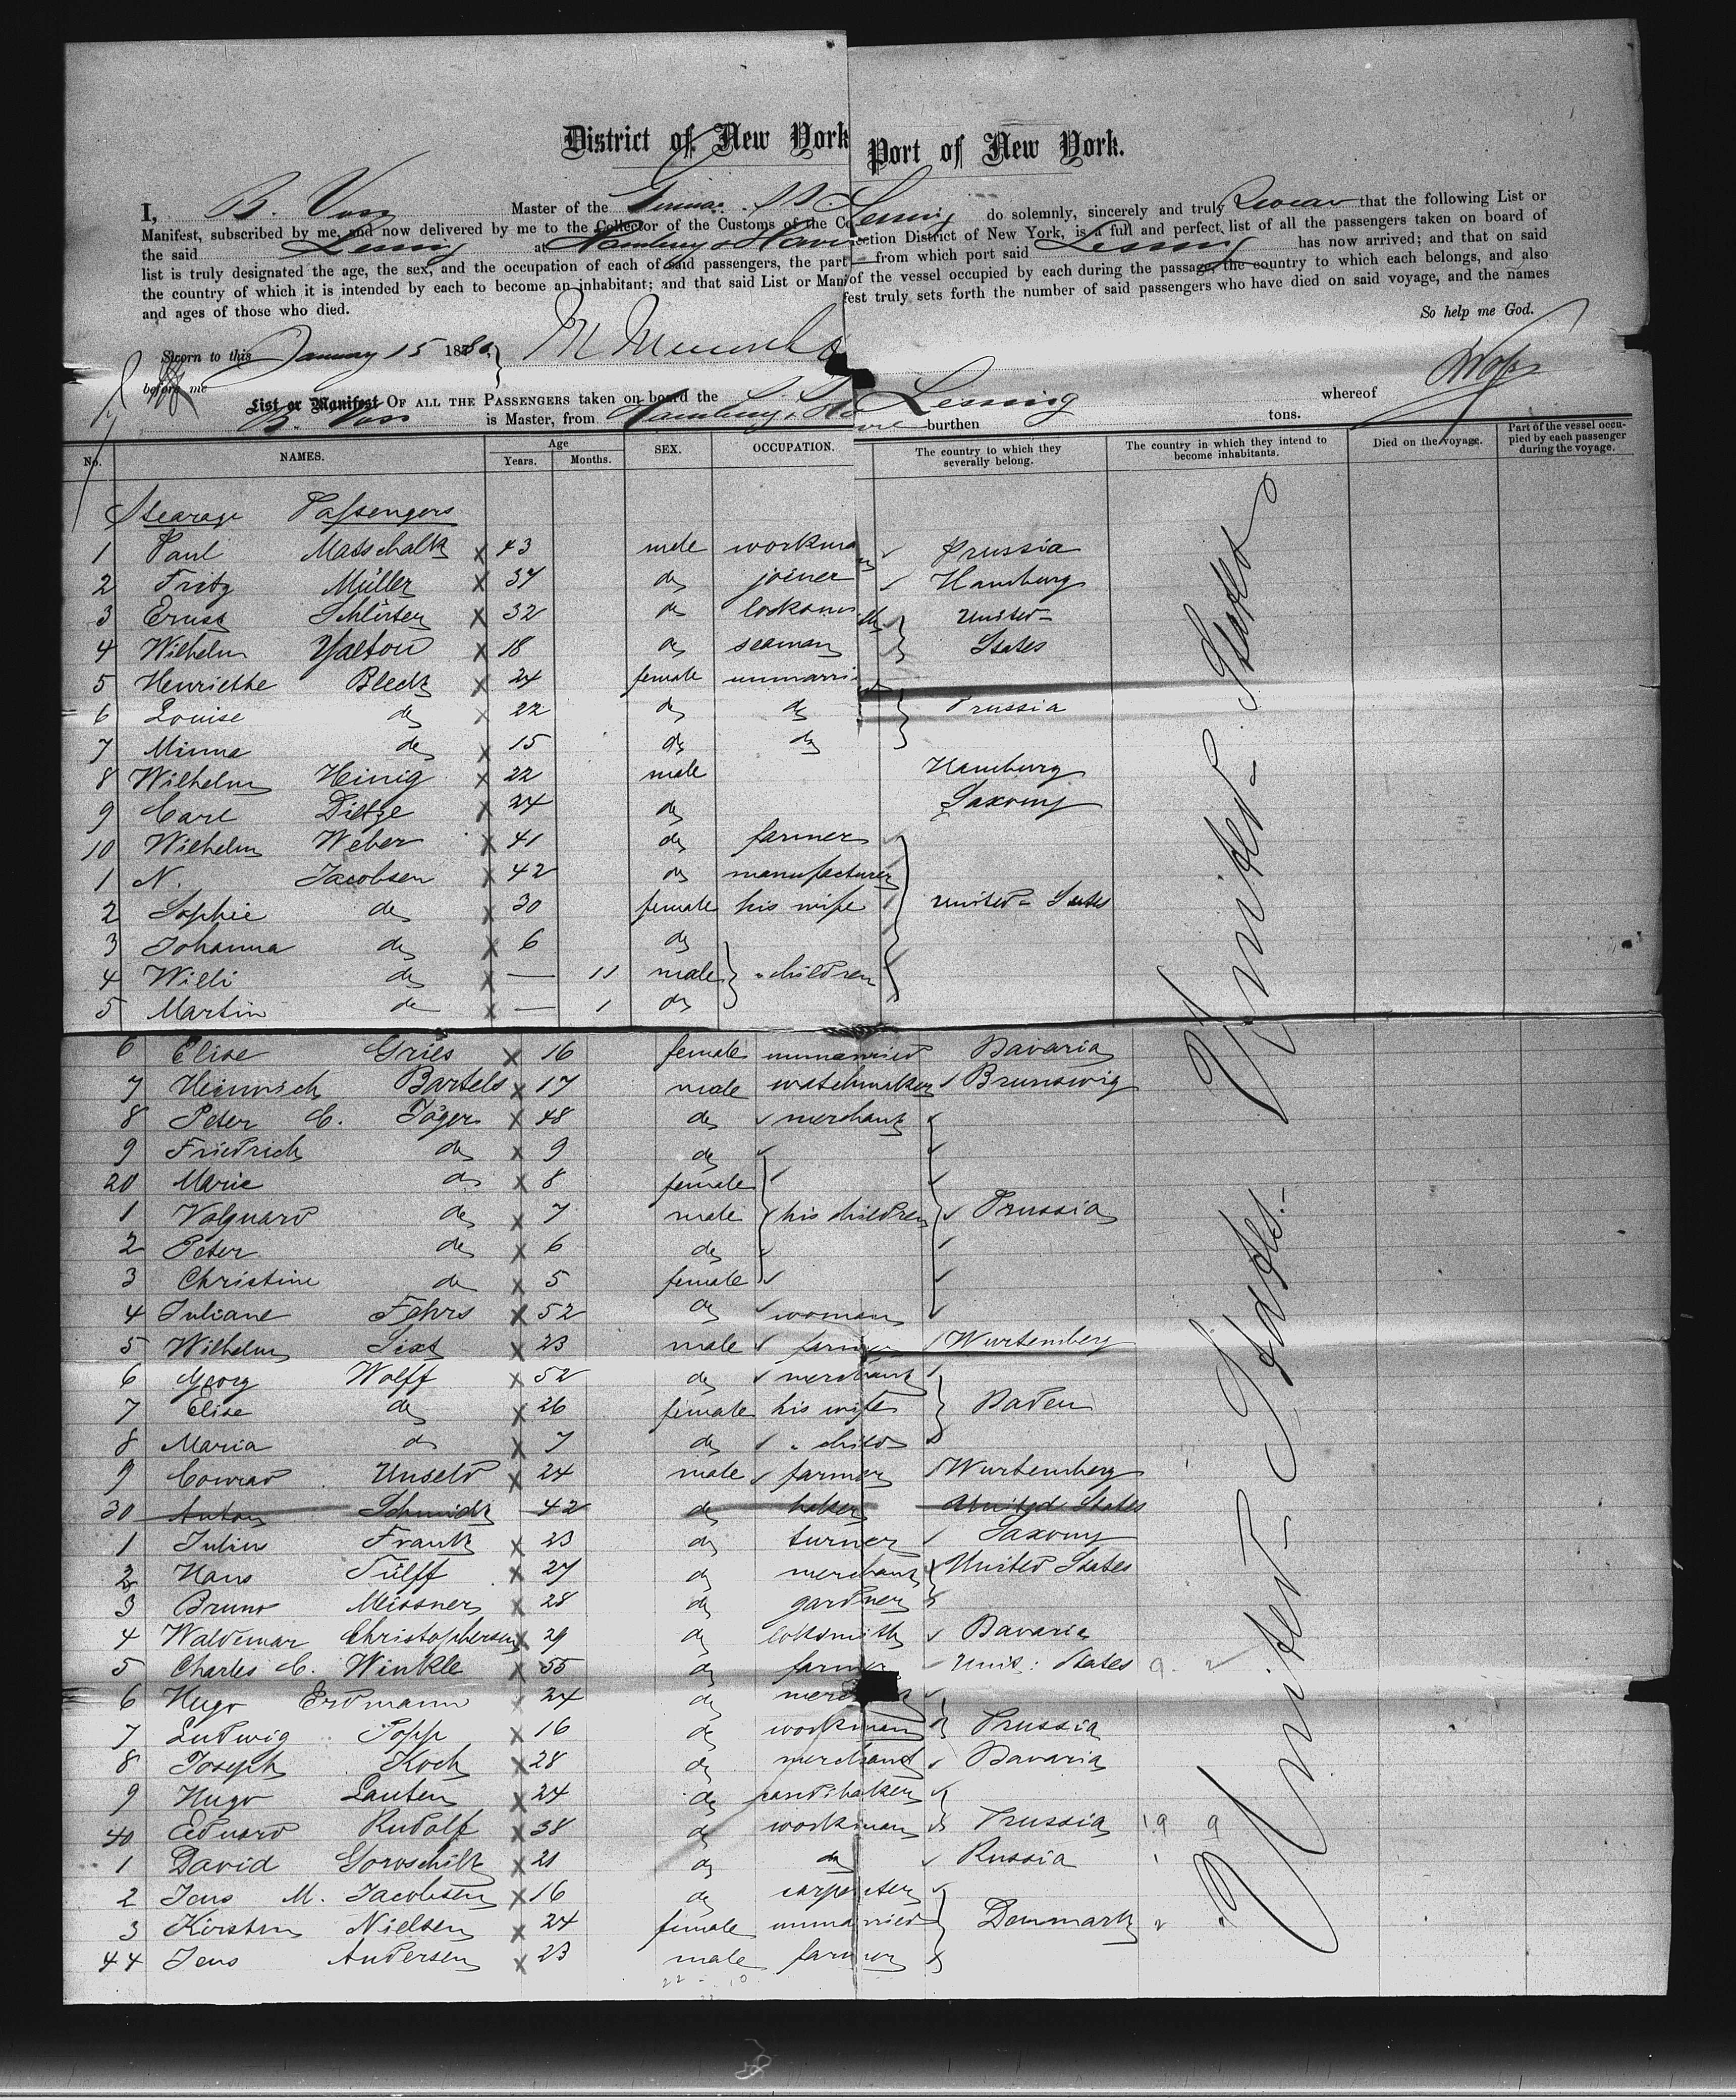 District of New York Port of New York.
I, B. Voss Master of the German S.S. Lessing do solemnly, sincerely and truly swear that the following List or
Manifest, subscribed by me, and now delivered by me to the Collector of the Customs of the Collection District of New York, is a full and perfect list of all the passengers taken on board of
the said Lessing at Hamburg & Havre from which port said Lessing has now arrived; and that on said
list is truly designated the age, the sex, and the occupation of each of said passengers, the part of the vessel occupied by each during the passage, the country to which each belongs, and also
the country of which it is intended by each to become an inhabitant; and that said List or Manifest truly sets forth the number of said passengers who have died on said voyage, and the names
and ages of those who died. So help me God.
Sworn to this January 15 1880
before me
List or Manifest OF ALL THE PASSENGERS taken on board the S.S. Lessing whereof
B. Voss is Master, from Hamburg & Havre burthen tons.
No. NAMES. Age Years. Months. SEX. OCCUPATION. The country to which they severally belong. The country in which they intend to become inhabitants. Died on the voyage. Part of the vessel occupied by each passenger during the voyage.
Stearage Passengers
1 Paul Matschalk x 43 male workman Prussia
2 Fritz Müller x 37 do joiner Hamburg
3 Ernst Schlüter x 32 do United
4 Wilhelm x 18 do seaman States
5 Henriette Bleck x 24 female unmarried
6 Louise do x 22 do do Prussia
7 Minna do x 15 do do
8 Wilhelm Heinig x 22 male Hamburg
9 Carl Dietze x 24 do Saxony
10 Wilhelm Weber x 41 do farmer
1 N. Jacobsen x 42 do manufacturer
2 Sophie do x 30 female his wife United States
3 Johanna do x 6 do
4 Willi do x — 11 male " children
5 Martin do x — 1 do
6 Elise Gries x 16 female unmarried Bavaria
7 Heinrich Bartels x 17 male watchmaker Brunswig
8 Peter C. Jäger x 48 do merchant
9 Friedrich do x 9 do
20 Marie do x 8 female
1 Volquard do x 7 male his children Prussia
2 Peter do x 6 do
3 Christine do x 5 female
4 Juliane Fehrs x 52 do woman
5 Wilhelm Sixt x 23 male farmer Wurtemberg
6 Georg Wolff x 52 do merchant
7 Elise do x 26 female his wife Baden
8 Maria do x 7 do " child
9 Conrad Unseld x 24 male farmer Wurtemberg
30 Anton Schmidt 42 do baker United States
1 Julius Frank x 23 do turner Saxony
2 Hans Tülff x 27 do merchant United States
3 Bruno Meissner x 28 do gardner
4 Waldemar Christophersen x 29 do loksmith Bavaria
5 Charles C. Winkle x 55 do farmer Unit: States
6 Hugo Erdmann x 24 do merchant
7 Ludwig Popp x 16 do workman Prussia
8 Joseph Koch x 28 do merchant Bavaria
9 Hugo Lauten x 24 do
40 Eduard Rudolf x 38 do workman Prussia
1 David x 21 do do Russia
2 Jens M. Jacobsen x 16 do carpenter
3 Kirsten Nielsen x 24 female unmarried Denmark
44 Jens Andersen x 23 male farmer
United States
United States
United